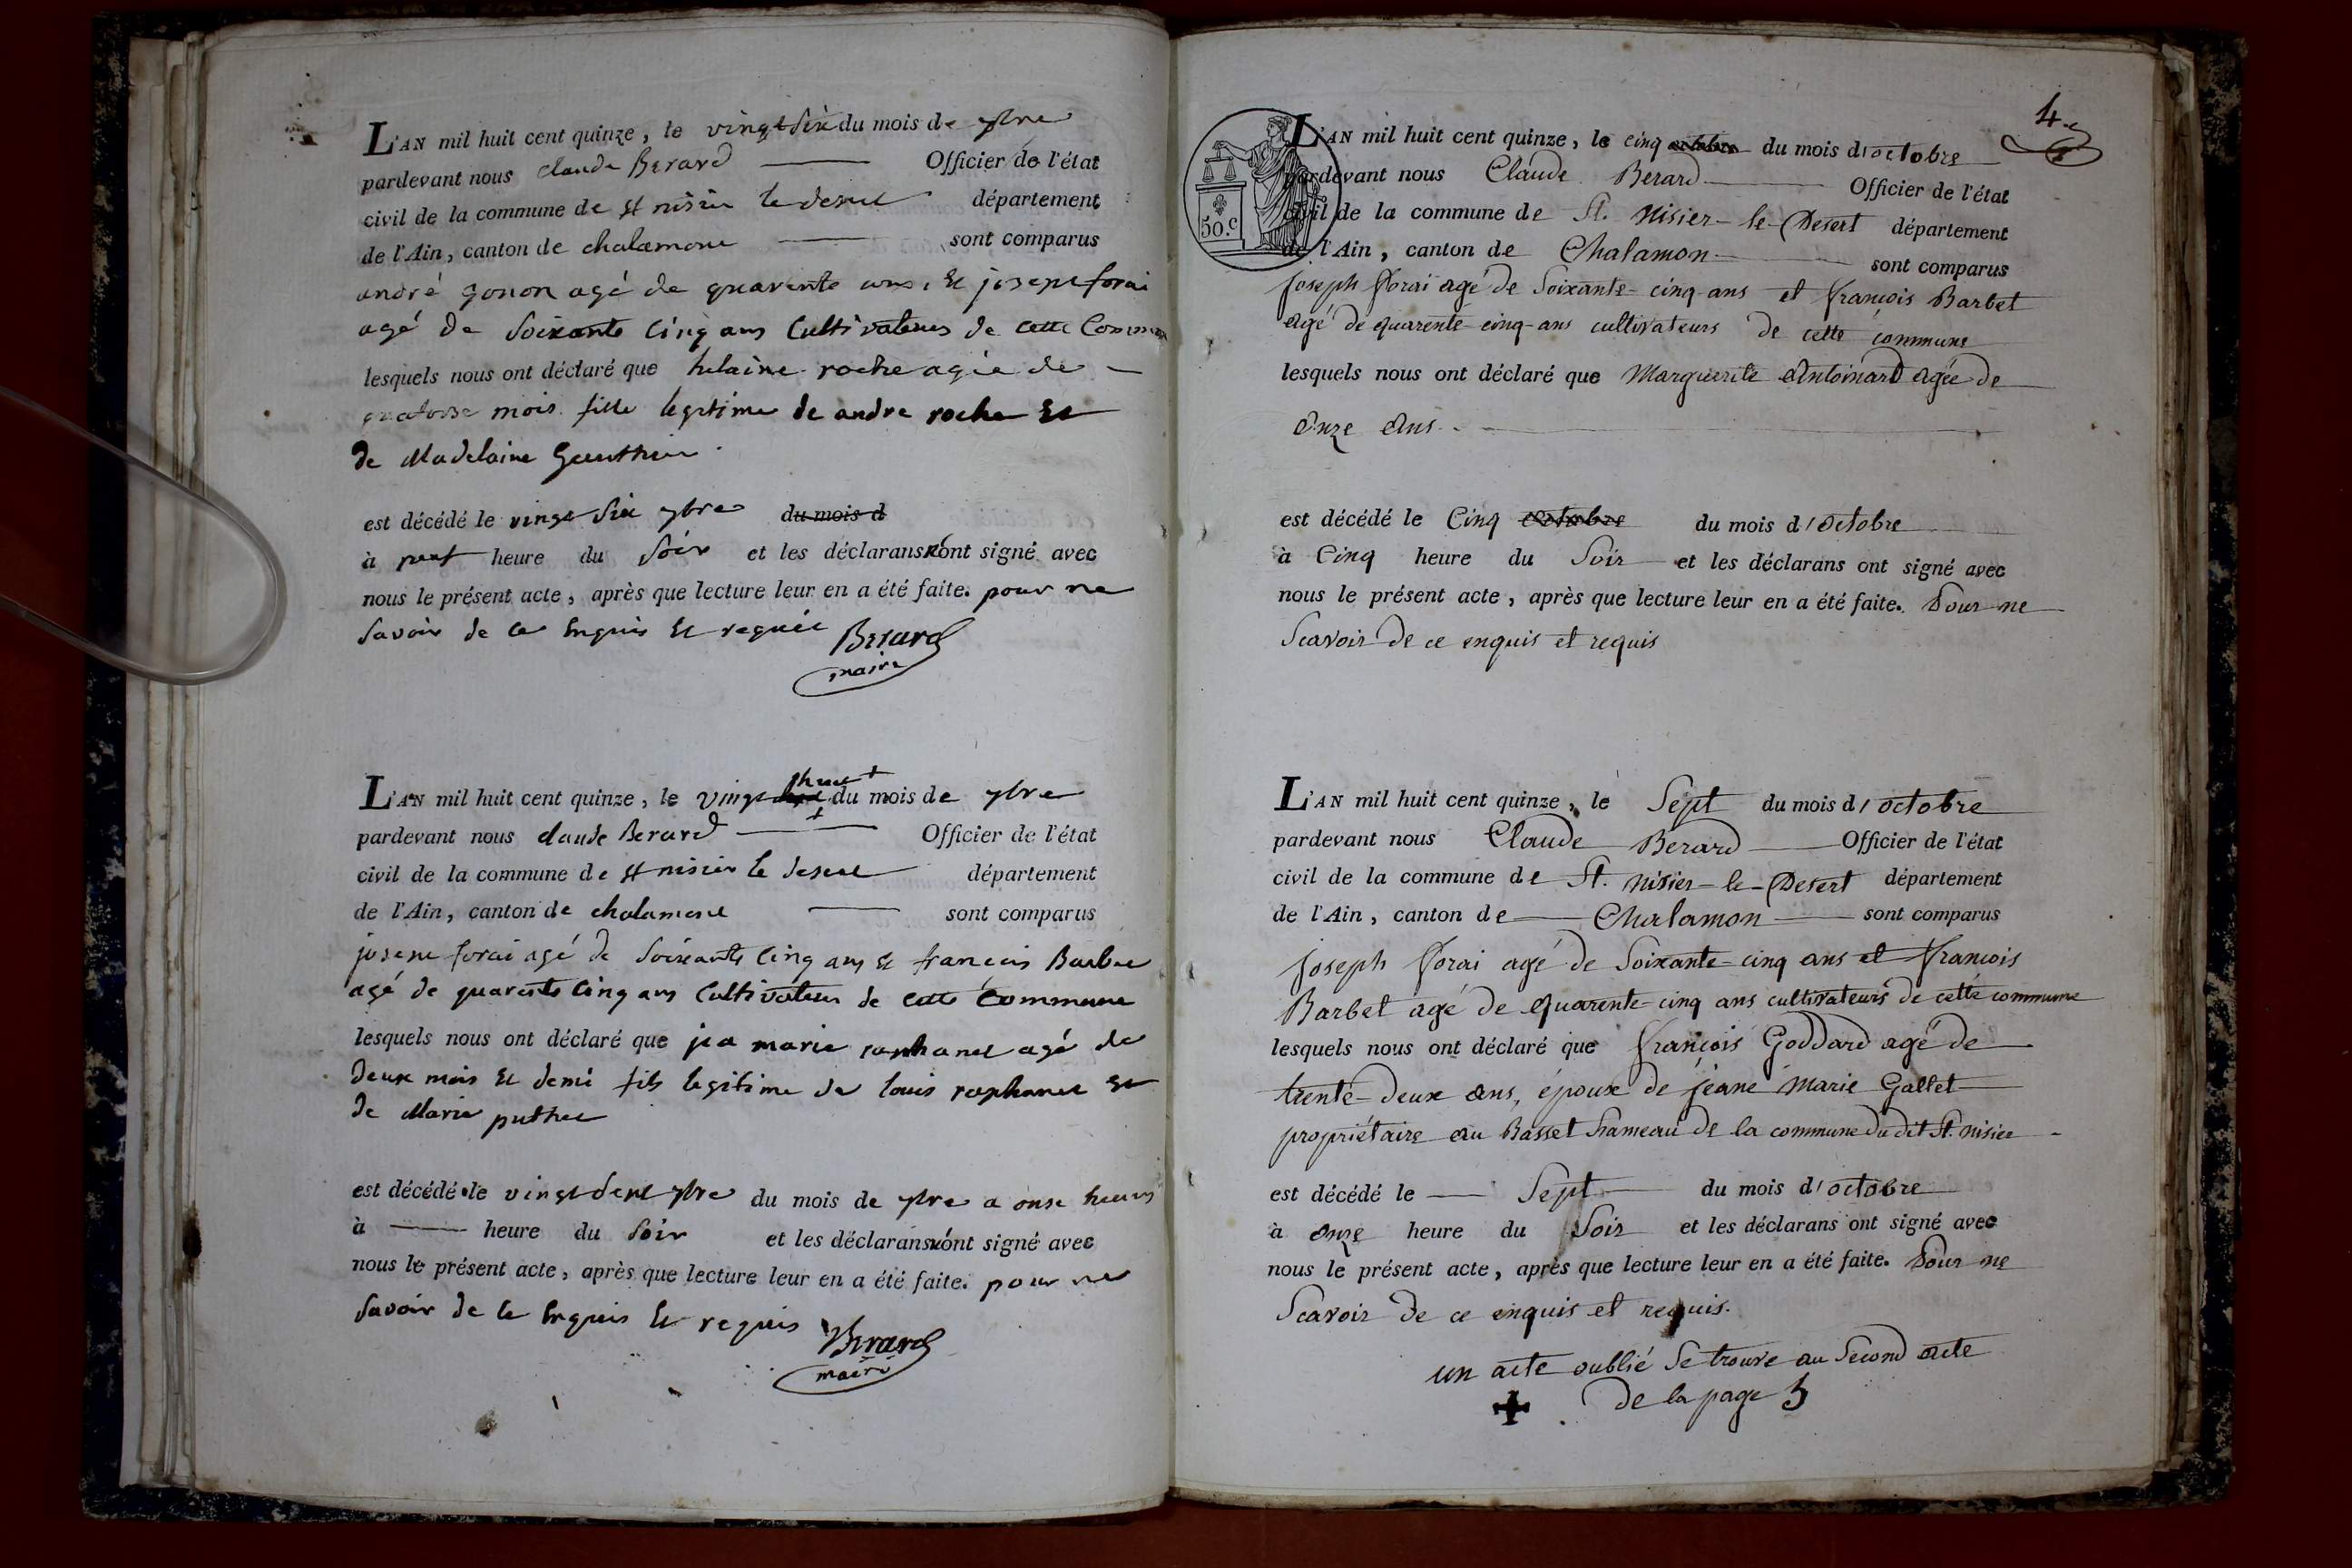 L'AN mil huit cent quinze, le vingt six du mois de 7bre
pardevant nous claude Berard Officier de l'état
civil de la commune de st nisier le desert département
de l'Ain, canton de chalamont sont comparus
andré gonon agé de quarente ans, et joseph forai
agé de soixante cinq ans Cultivateurs de cette Commune
lesquels nous ont déclaré que helaine roche agée de
quatorse mois fille legitime de andre roche et
de Madelaine Gauthier
est décédé le vingt six 7bre du mois d
à neuf heure du soir et les déclarans n'ont signé avec
nous le présent acte, après que lecture leur en a été faite. pour ne
savoir de ce enquis et requis Berard
maire
L'AN mil huit cent quinze, le vingt huit du mois de 7bre
pardevant nous claude Berard Officier de l'état
civil de la commune de st nisier le desert département
de l'Ain, canton de chalamont sont comparus
joseph forai agé de soixante cinq ans et francois Barbet
agé de quarente cinq ans Cultivateurs de cette Commune
lesquels nous ont déclaré que marie raphanel agé de
deux mois et demi fils legitime de louis raphanel et
de Marie puthet
est décédé le vingt sept 7bre du mois de 7bre a onse heures
à heure du soir et les déclarans n'ont signé avec
nous le présent acte, après que lecture leur en a été faite. pour ne
savoir de ce enquis et requis Berard
maire
4
50.c
L'AN mil huit cent quinze, le cinq octobre du mois d'octobre
pardevant nous Claude Berard Officier de l'état
civil de la commune de St. Nisier-le-Desert département
de l'Ain, canton de Chalamon sont comparus
joseph forai agé de Soixante-cinq ans et françois Barbet
agé de quarente-cinq-ans cultivateurs de cette commune
lesquels nous ont déclaré que Marguerite Antoinard agée de
onze ans
est décédé le Cinq octobre du mois d'octobre
à Cinq heure du Soir et les déclarans ont signé avec
nous le présent acte, après que lecture leur en a été faite. Pour ne
Scavoir de ce enquis et requis
L'AN mil huit cent quinze, le Sept du mois d'octobre
pardevant nous Claude Berard Officier de l'état
civil de la commune de St. Nisier-le-Desert département
de l'Ain, canton de Chalamon sont comparus
joseph forai agé de Soixante-cinq ans et françois
Barbet agé de quarente-cinq ans cultivateurs de cette commune
lesquels nous ont déclaré que françois Goddard agé de
trente-deux ans, époux de jeane Marie Gallet
propriétaire au Basset hameau de la commune du dit St. nisier
est décédé le Sept du mois d'octobre
à onze heure du Soir et les déclarans ont signé avec
nous le présent acte, après que lecture leur en a été faite. Pour ne
Scavoir de ce enquis et requis.
un acte oublié se trouve au Second acte
de la page 5